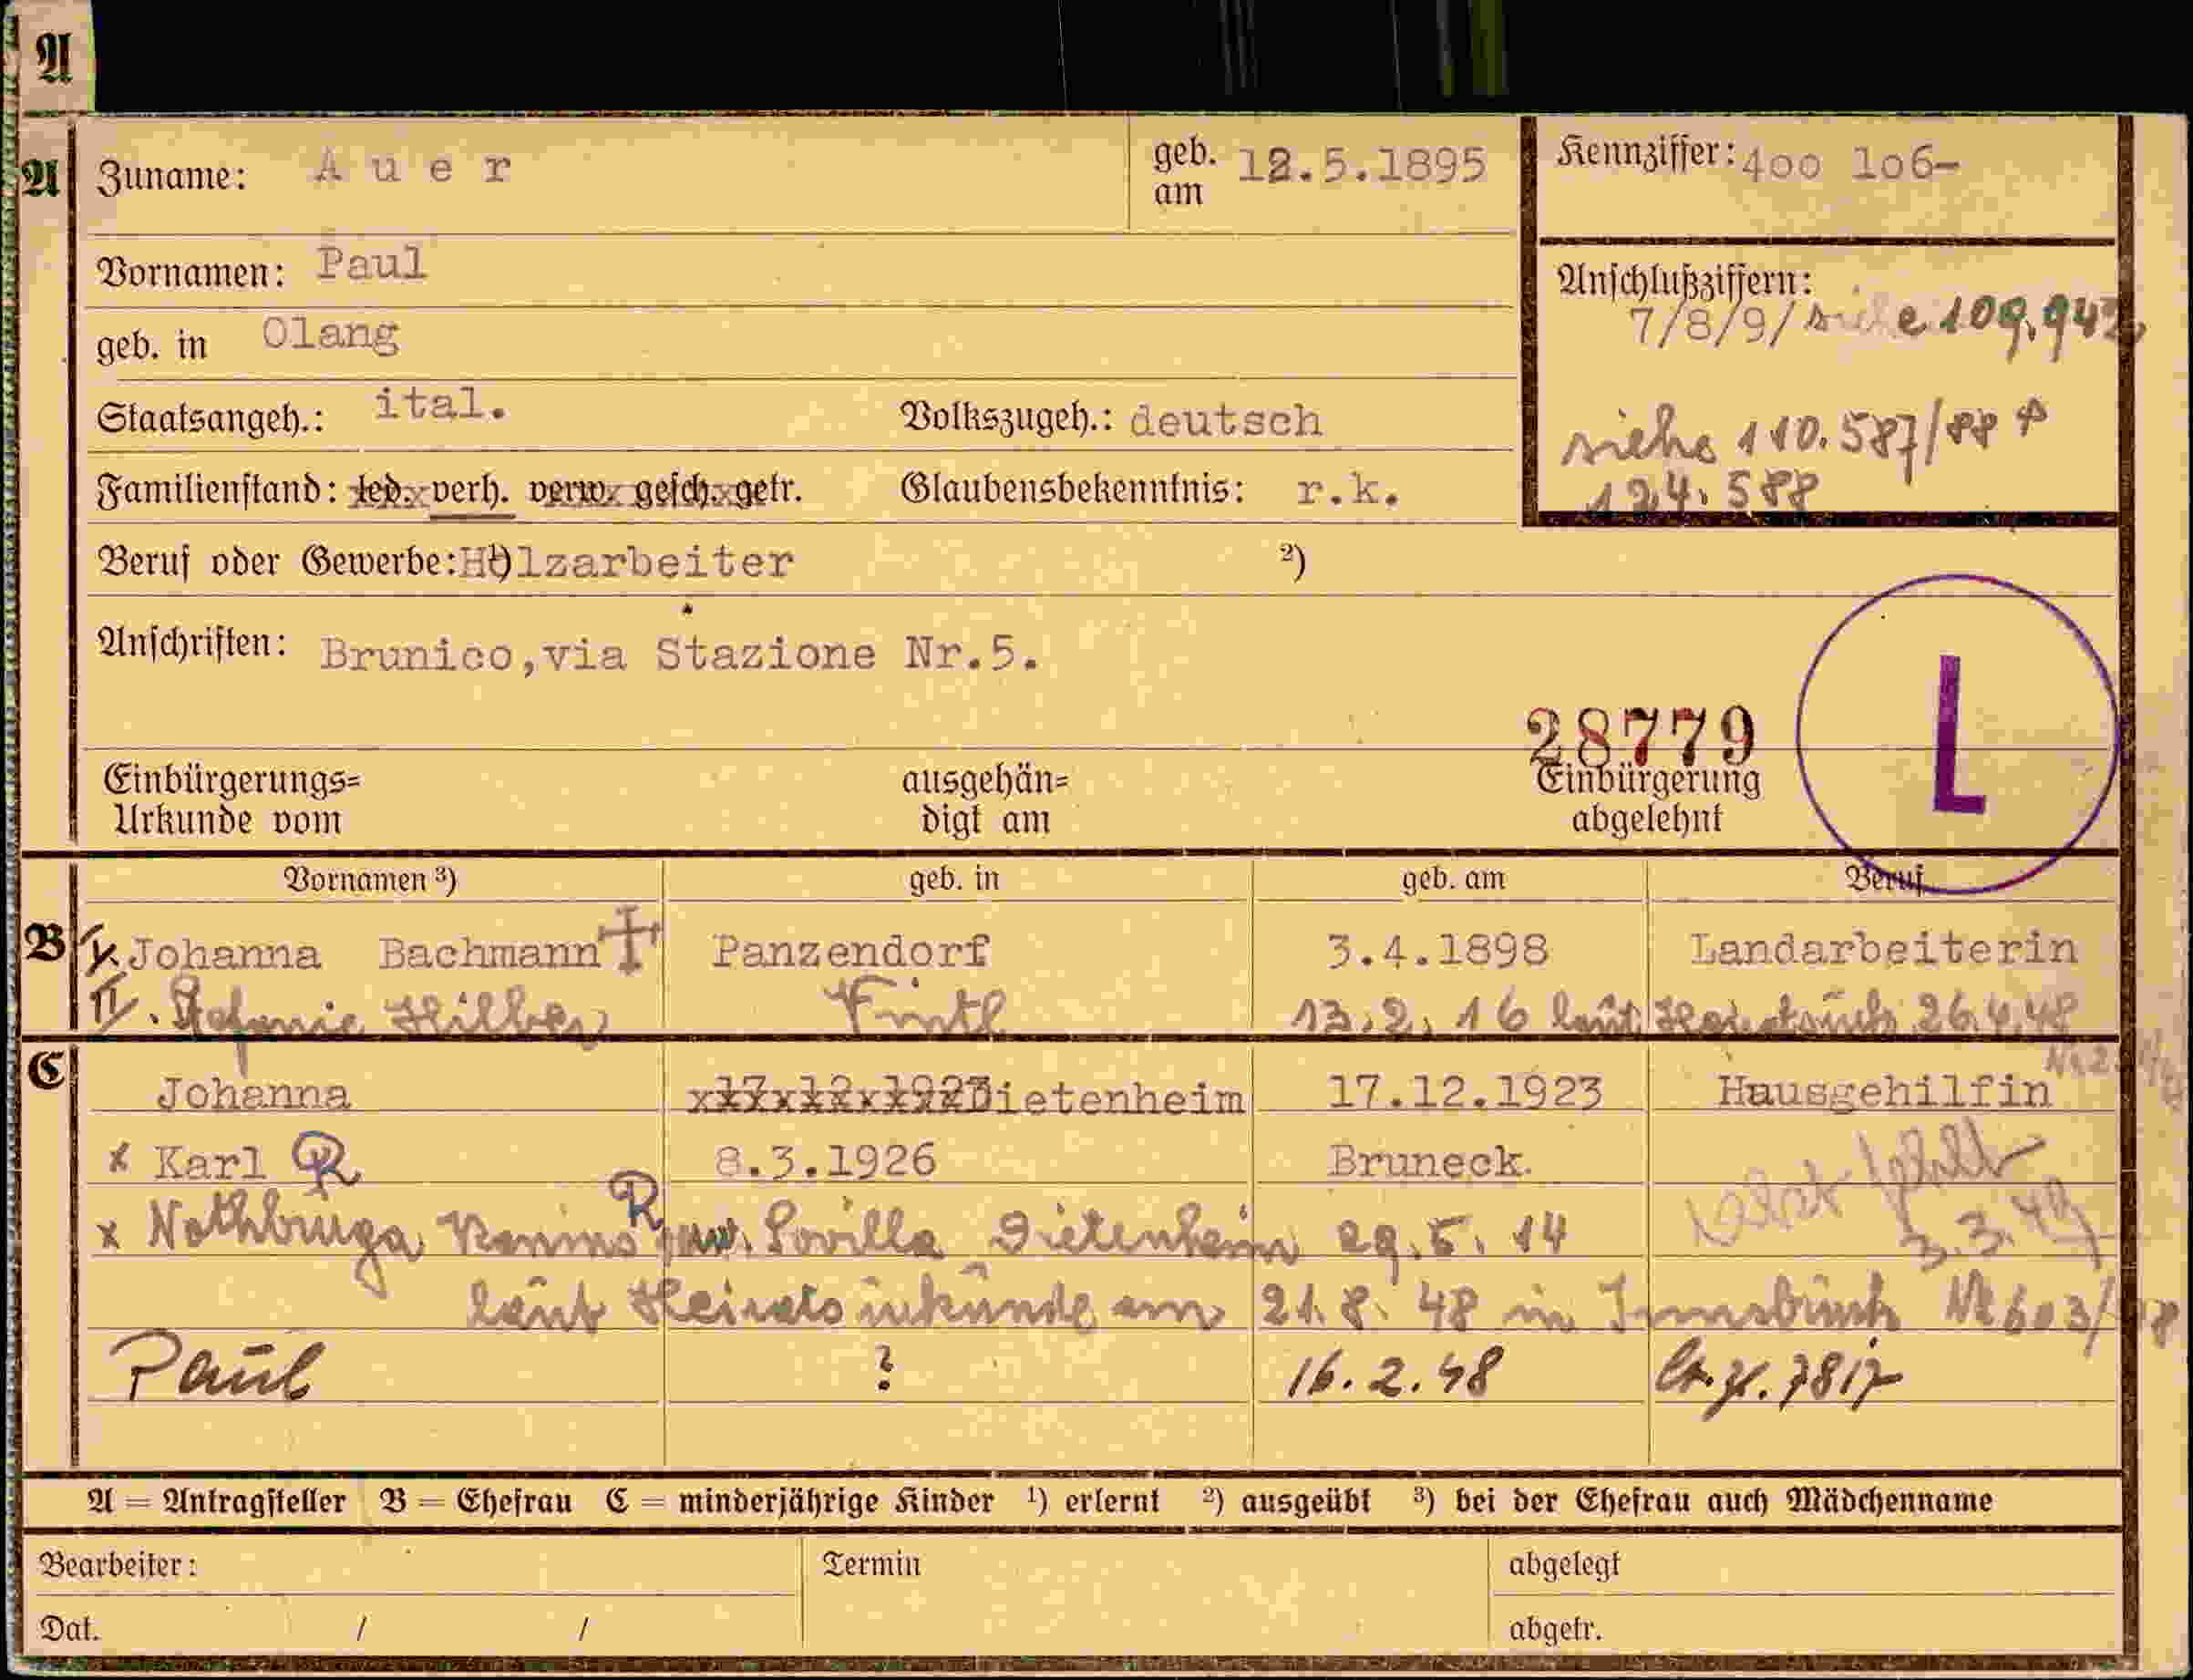 A
A
Zuname: Auer geb. am 12.5.1895 Kennziffer: 400 106-
Vornamen: Paul
Anschlußziffern:
7/8/9/ siehe 109.942
geb. in Olang
Staatsangeh.: ital. Volkszugeh.: deutsch
siehe 110.587/88
124.588
Familienstand: led. verh. verw. gesch. getr. Glaubensbekenntnis: r.k.
Beruf oder Gewerbe: Holzarbeiter ²)
Anschriften: Brunico,via Stazione Nr.5.
28779
L
Einbürgerungs= ausgehän= Einbürgerung
Urkunde vom digt am abgelehnt
Vornamen ³) geb. in geb. am Beruf
B I. Johanna Bachmann Panzendorf 3.4.1898 Landarbeiterin
II. Stefanie Hilber Vintl 13.2.16 laut 26.4.48
C
Johanna Dietenheim 17.12.1923 Hausgehilfin
x Karl R 8.3.1926 Bruneck.
3.3.49
x Nothburga R Sovilla Dietenheim 29.5.14
laut Heiratsurkunde am 21.8.48 in Innsbruck Nr 603/48
Paul ? 16.2.48
A = Antragsteller B = Ehefrau C = minderjährige Kinder ¹) erlernt ²) ausgeübt ³) bei der Ehefrau auch Mädchenname
Bearbeiter: Termin abgelegt
Dat. / / abgetr.